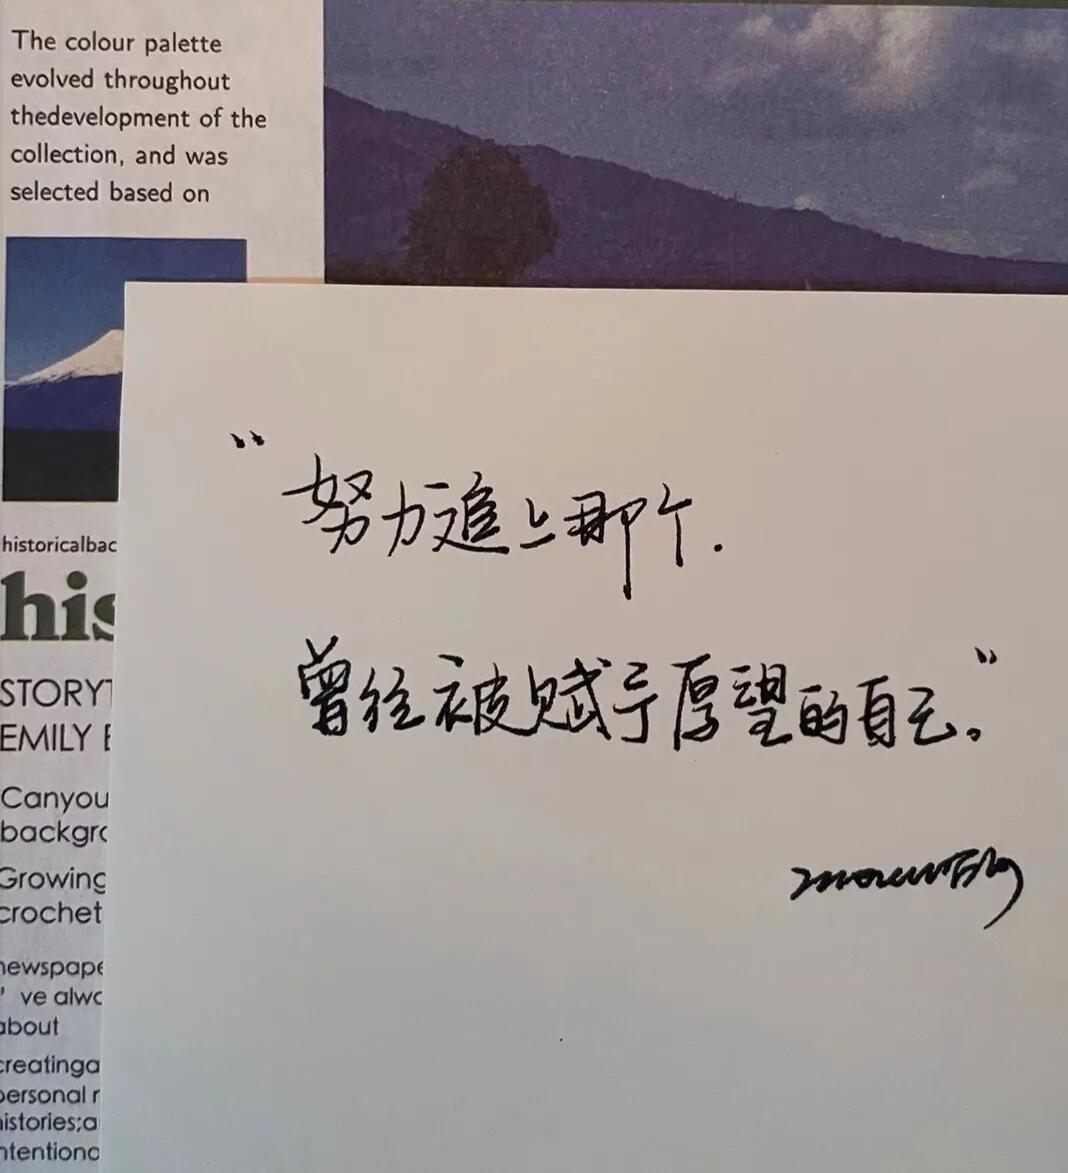 The colour palette
evolved throughout
thedevelopment of the
collection, and was
selected based on
historicalbac
his
STORYT
EMILY E
Canyou
backgro
Growing
crochet
newspape
' ve alwa
about
creatinga
personal
histories;a
ntentiona
“努力追上那个.
曾经被赋予厚望的自己。”